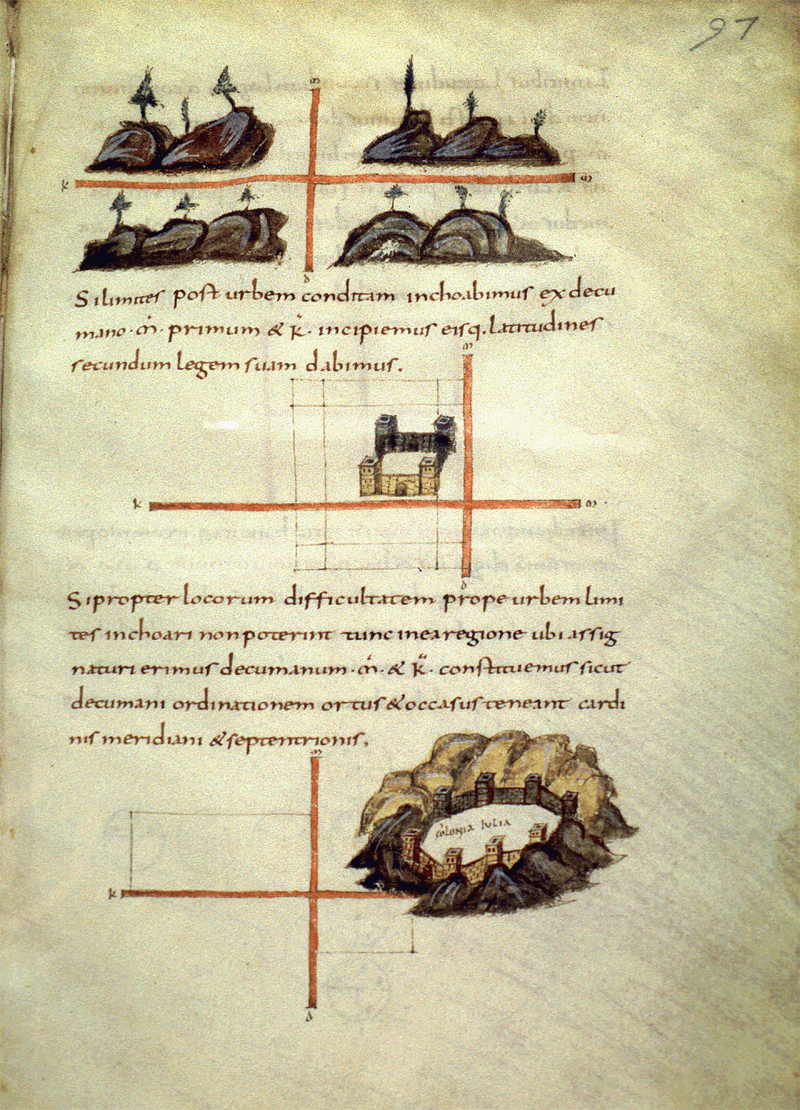 97
k m
Si limites post urbem conditam inchoabimus ex decu
mano · m̄ · primum & k̄ · incipiemus eisq. latitudines
secundum legem suam dabimus.
m
k m
d
Si propter locorum difficultatem prope urbem limi
tes inchoari non poterint tunc in ea regione ubi assig
naturi erimus decumanum · m̄ · & k̄ · constituemus sicut
decumani ordinationem ortus & occasus teneant cardi
nis meridiani & septentrionis.
m
colonia iulia
k
d